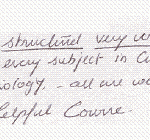 structured very w
every subject in C
iology. - all are wo
elpful Course.